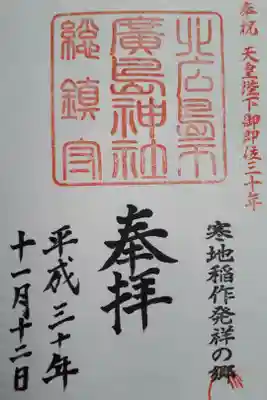 奉祝 天皇陛下御即位三十年
寒地稲作発祥の郷
北広島市
廣島神社
総鎮守
奉拝
平成三十年
十一月十二日